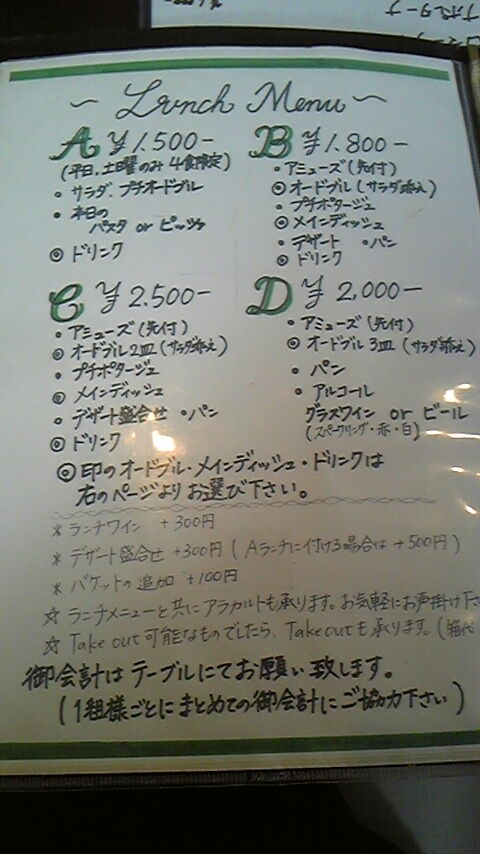 ~ Lunch Menu ~
A ¥1.500-
(平日、土曜のみ 4食限定)
• サラダ、プチオードブル
• 本日の
パスタ or ピッツァ
◎ ドリンク
B ¥1.800-
• アミューズ(先付)
◎ オードブル(サラダ添え)
• プチポタージュ
◎ メインディッシュ
• デザート • パン
◎ ドリンク
C ¥2.500-
• アミューズ(先付)
◎ オードブル2皿(サラダ添え)
• プチポタージュ
◎ メインディッシュ
• デザート盛合せ • パン
◎ ドリンク
D ¥2,000-
• アミューズ(先付)
◎ オードブル3皿(サラダ添え)
• パン
• アルコール
グラスワイン or ビール
(スパークリング・赤・白)
◎印のオードブル・メインディッシュ・ドリンクは
右のページよりお選び下さい。
* ランチワイン +300円
* デザート盛合せ +300円(Aランチに付ける場合は +500円)
* バゲットの追加 +100円
☆ ランチメニューと共にアラカルトも承ります。お気軽にお声掛け下さ
☆ Take out可能なものでしたら、Take outも承ります。(箱代
御会計はテーブルにてお願い致します。
(1組様ごとにまとめての御会計にご協力下さい)